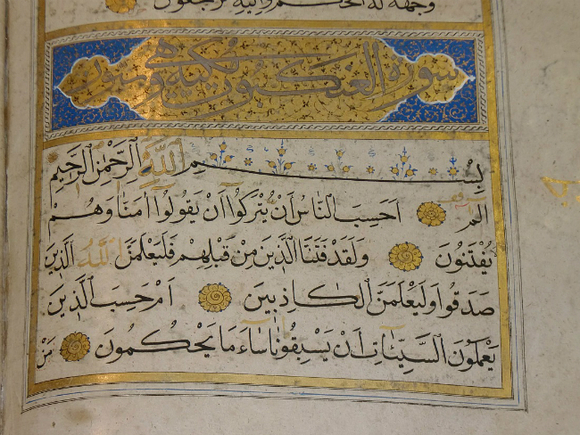 وجهه له الحكم واليه ترجعون
سورة العنكبوت مكية وهي
بسم الله الرحمن الرحيم
الم احسب الناس ان يتركوا ان يقولوا امنا وهم
يفتنون ولقد فتنا الذين من قبلهم فليعلمن الله الذين
صدقوا وليعلمن الكاذبين ام حسب الذين
يعملون السيئات ان يسبقونا ساء ما يحكمون من